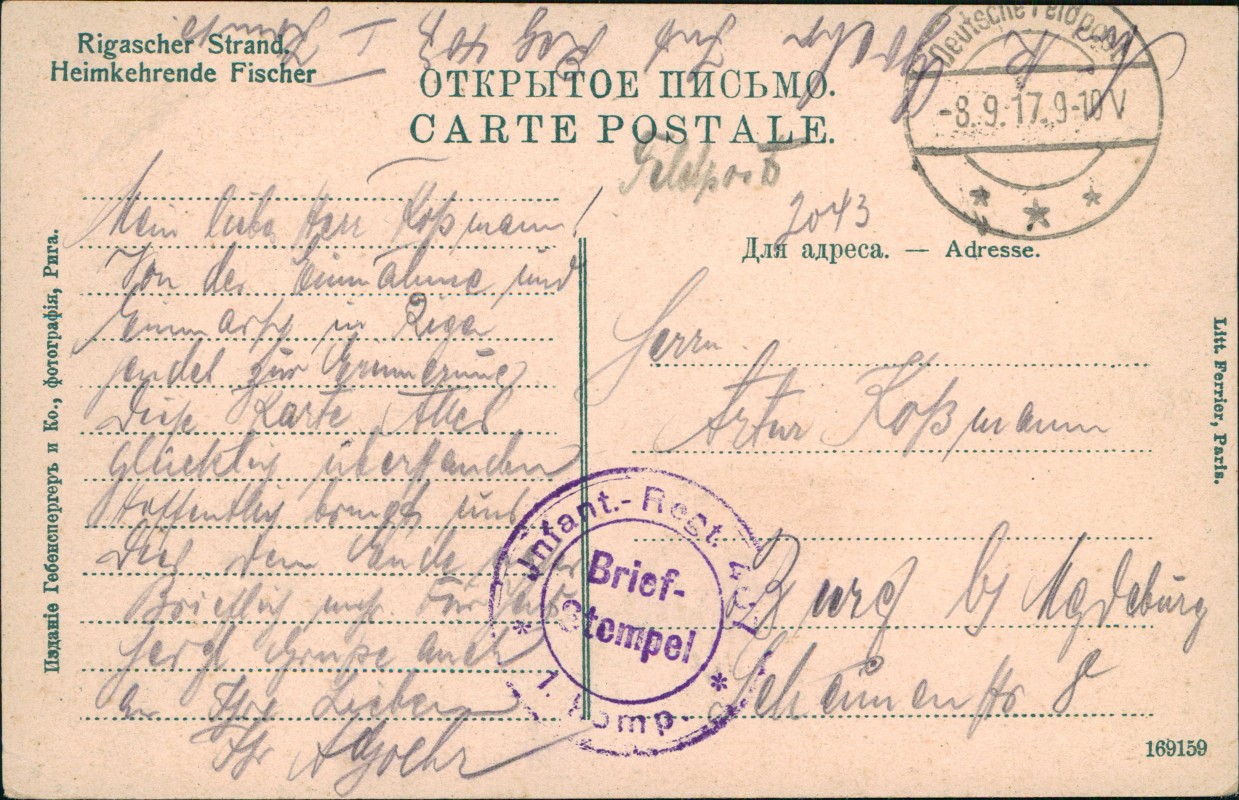 Rigascher Strand.
Heimkehrende Fischer
ОТКРЫТОЕ ПИСЬМО.
CARTE POSTALE.
Deutsche Feldpost
-8.9.17.9-10V
Feldpost
2043
Для адреса. — Adresse.
Mein lieber Herr Koßmann!
Von der Einnahme und
Einmarsch in Riga
sendet zur Erinnerung
diese Karte. Alles
Glücklich überstanden
Hoffentlich bringt uns
Dies dem Ende
Brieflich mehr. Für
herzl Grüße auch
an Ihre Lieben
Ihr A Goehr
Herrn
Artur Koßmann
Burg b/ Magdeburg
Scheunenstr 8
Infant.-Regt.
Brief-
Stempel
1. Komp.
Изданіе Гебенспергеръ и Ко., фотографія, Рига.
Litt. Ferrier, Paris.
169159